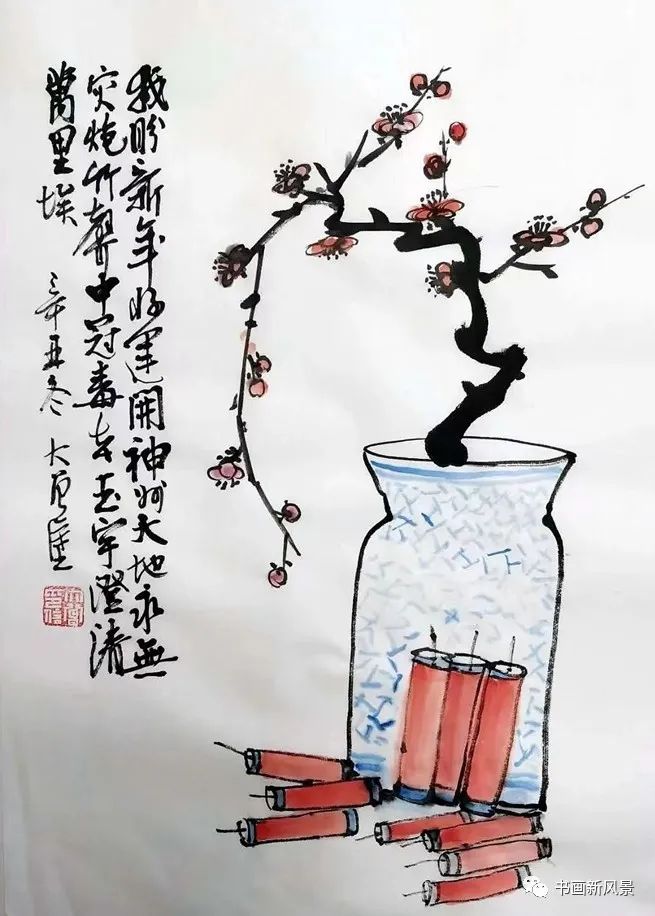 我盼新年好運開神州大地永無
灾炮竹聲中冠毒去玉宇澄清
萬里埃 辛丑冬 大
书画新风景